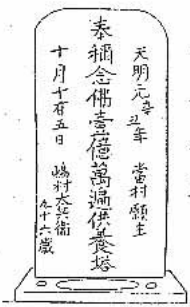 天明元辛丑年 當村願主
奉稱念佛壹億萬遍供養塔
十月十有五日 嶋村太兵衛
九十六歳